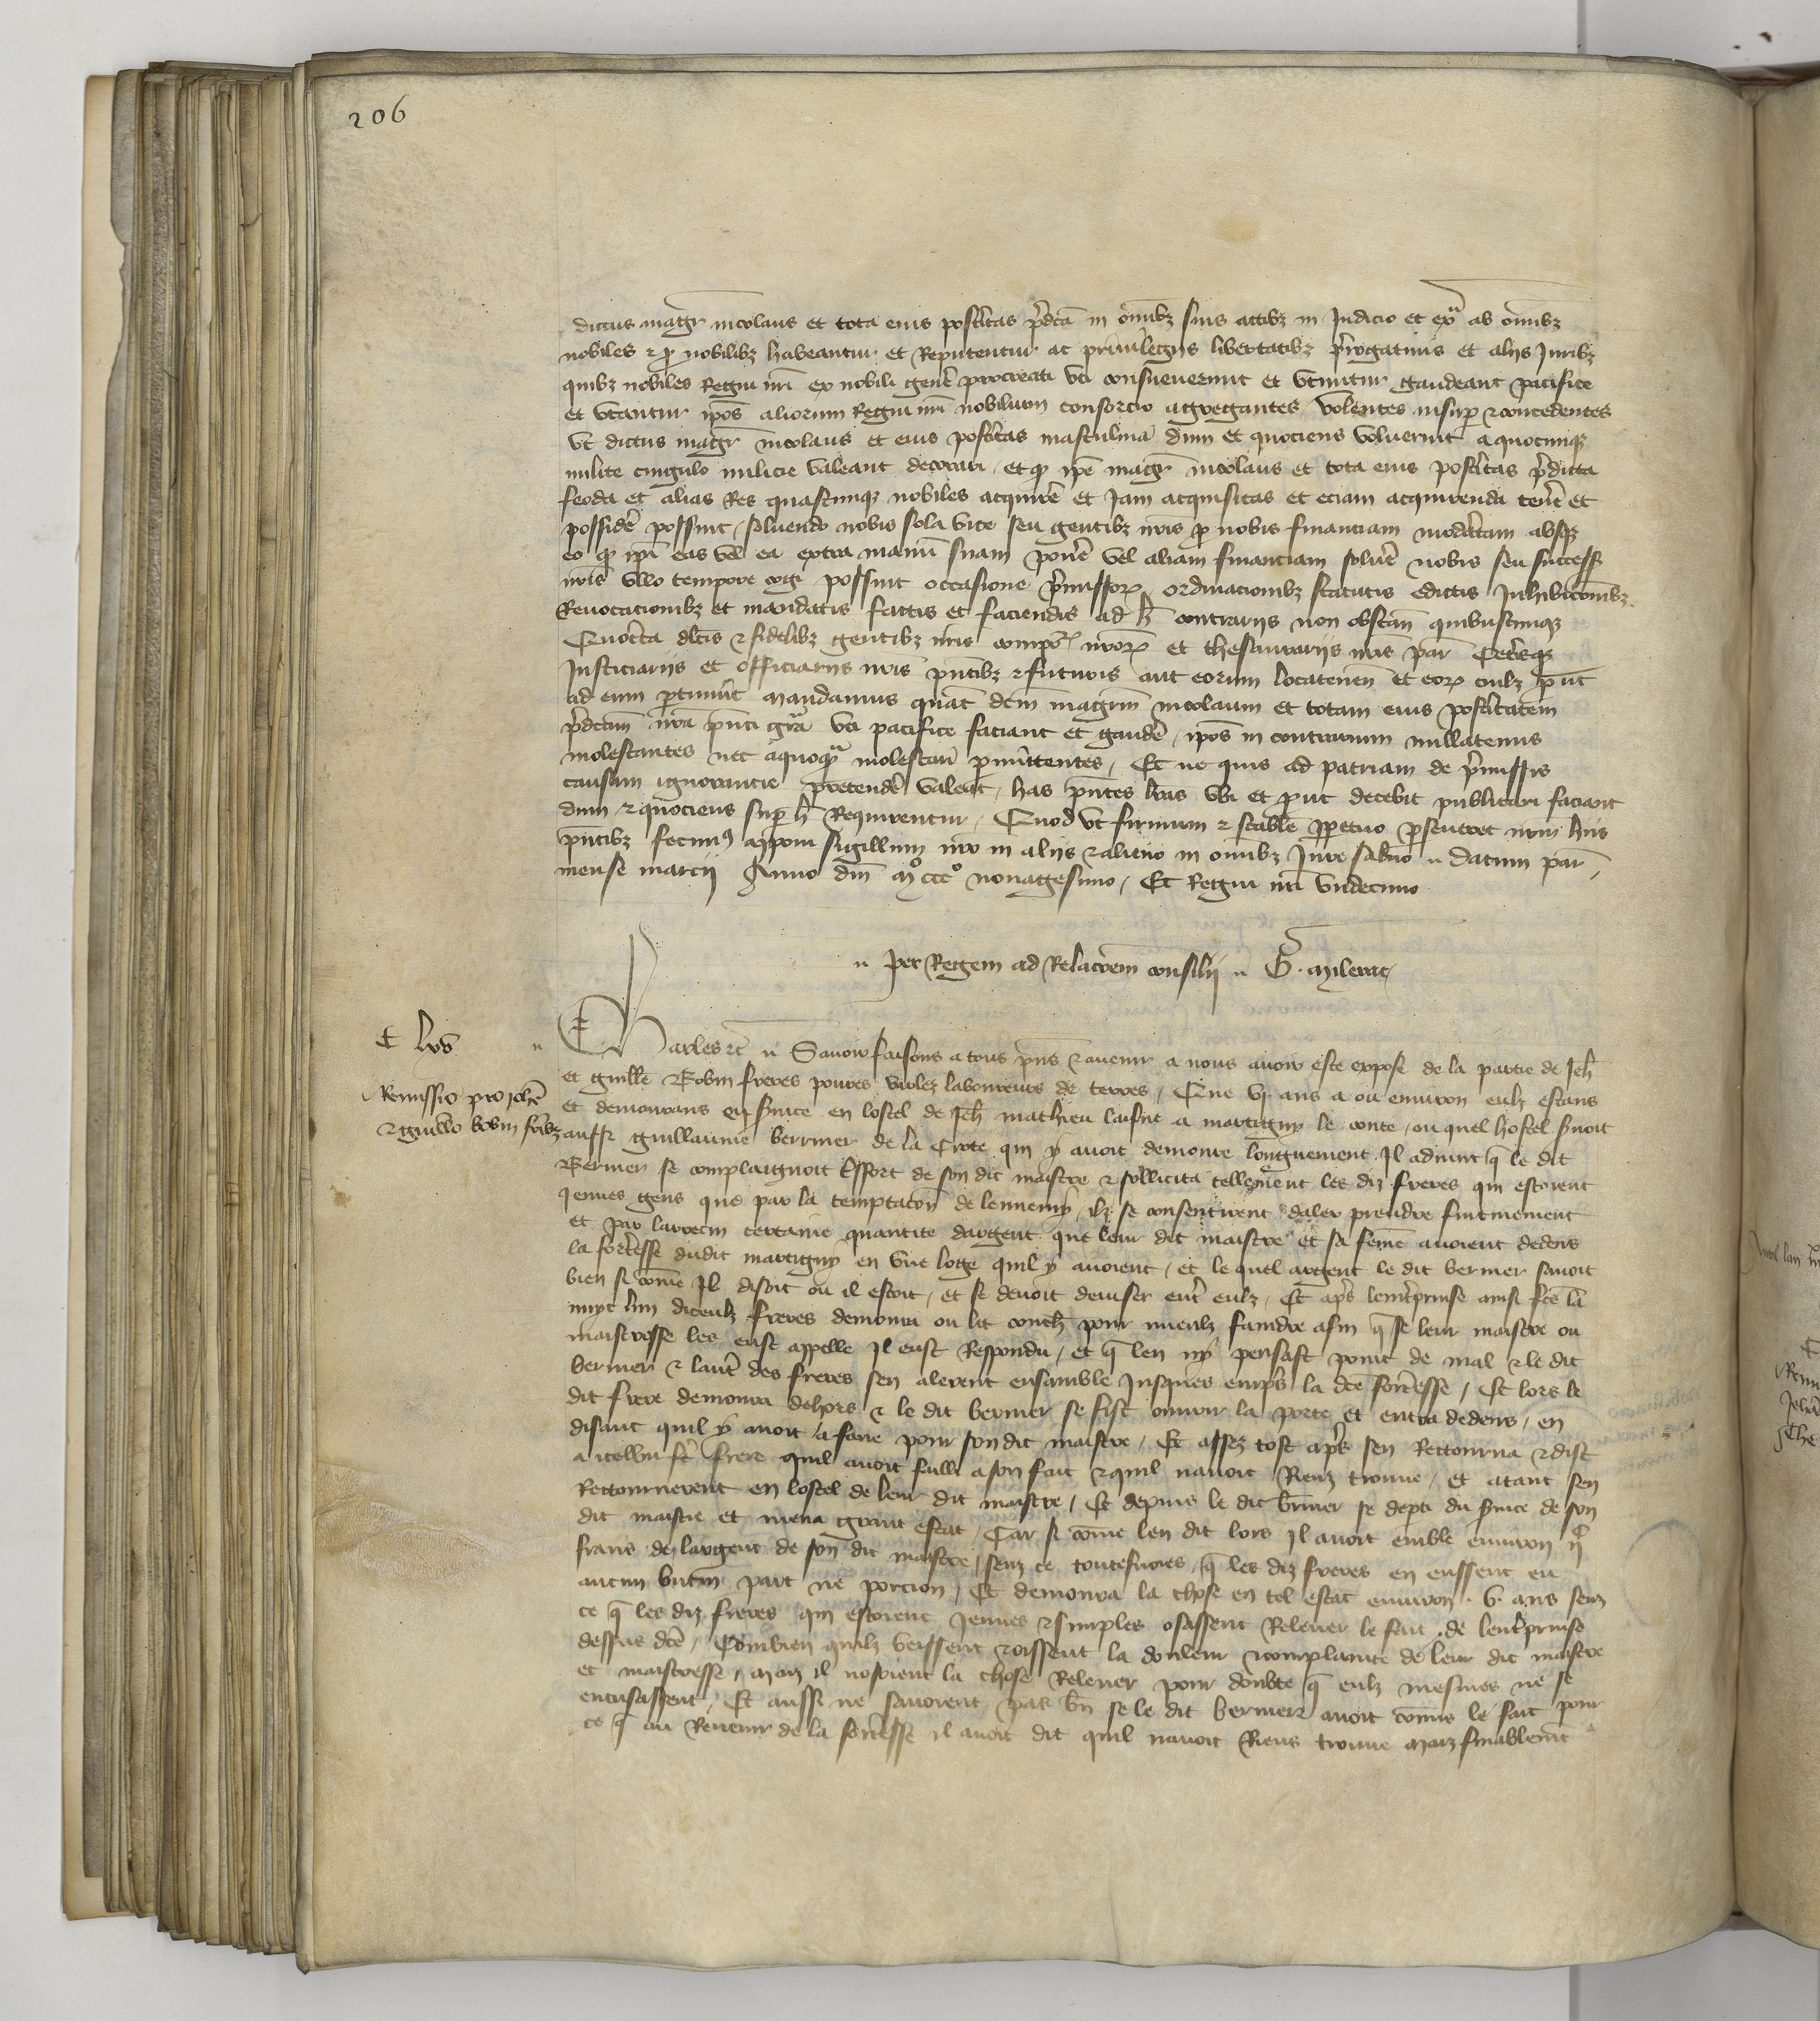 206
dictus magr nicolaus et tota eius postitas pdca in omibz suis actibz in Judicio et exa ab omibz
nobiles et pro nobilibz habeantur et Reputentur ac priuilegijs libertatibz prerogatiuis et alijs Juribz
quibz nobiles Regni nri ex nobili genere procreati vti consueuerunt et vtuntur gaudeant pacifice
et vtantur ipos aliorum Regni nri nobilium consorcio aggregantes volentes insup et concedentes
vt dictus magr nicolaus et eius postitas masculina dum et quociens voluerint a quocunqz
milite cingulo milicie valeant decorari, et qd ipe magr nicolaus et tota eius postitas pdicta
feoda et alias Res quascunqz nobiles acquire et Jam acquisitas et eciam acquirenda tenere et
possidere possint, soluendo nobis sola vice seu gentibz nris pro nobis financiam moderatam absqz
eo qd ipi eas vel ea extra manu suam ponere vel aliam financiam soluere nobis seu success
nris vllo tempore cogi possint occasione pmissorz, ordinacionibz statutis edictis Inhibicionibz
Reuocacionibz et mandatis factis et faciendis ad hec contrarijs non obstan quibuscunqz
Quocirca dltis et fidelibz gentibz nris compotorz nrorz et thesaurarijs nris par Ceterisqz
Justiciarijs et officiarijs nris pntibz et futuris aut eorum locatenen et eorz cuilz put
ad eum ptinuit mandamus quat dem magrm nicolaum et totam eius posteritatem
pdcam nra pnti gra vti pacifice faciant et gaudere, ipos in contrarium nullatenus
molestantes nec a quoqua molestari pmittentes, Et ne quis ad patriam de pmissis
causam ignorancie pretendere valeat, has pntes lras vbi et put decebit publicari faciant
dum et quociens sup hec Requirentur, Quod vt firmum et stabile ppetuo pseueret nrm hiis
pntibz fecimus apponi sigillum nro in alijs et alieno in omibz Jure saluo Datum par
mense marcij Anno dni mo ccco nonagesimo, Et Regni nri vndecimo
Per Regem ad Relacoem consilij G. milerat
Charles etc Sauoir faisons a tous pns et auenir a nous auoir este expose de la partie de Jeh
et guille Robin freres poures varlez laboureurs de terres, Que vj ans a ou enuiron eulz estans
et demourans en suice en lostel de Jeh mathieu laisne a martigny le conte, ou quel hostel suoit
aussi guillaume bermer de la Crote qui y auoit demoure longuement Il aduint que le dit
Bermer se complaignoit Effort de son dit maistre et sollicita tellement les diz freres qui estoient
Jeunes gens que par la temptacon de lennemy, ilz se consentirent daler prendre furtiuement
et par larrecin certaine quantite dargent que leur dit maistre et sa feme auoient dedens
la forteresse dudit martigny en vne loge quil y auoient, et le quel argent le dit bermer sauoit
bien si come Il disoit ou il estoit, et se deuoit deuiser entre eulz, Et apres lentreprinse ainsi fcte la
nuyt lun diceulz freres demoura ou lit couche pour mieulz faindre afin que se leur maistre ou
maistresse les eust appelle Il eust Respondu, et que len ny pensast point de mal et le dit
bermer et lautre des freres sen alerent ensamble Jusques empres la dce forteresse, Et lors le
dit frere demoura dehors et le dit bermer se fist ouurir la porte et entra dedens, en
disant quil y auoit a faire pour son dit maistre, Et assez tost apres sen Rettourna et dist
a icelui frere quil auoit failli a son fait et quil nauoit Rienz trouue, et atant sen
Rettournerent en lostel de leur dit maistre, Et depuis le dit bermer se depti du suice de son
dit maistre et mena grant estat, Car si come len dit lors Il auoit emble enuiron
frans de largent de son dit maistre, senz ce toutesuoies que les diz freres en eussent eu
aucun butin part ne porcion, Et demoura la chose en tel estat enuiron v ans senz
ce que les diz freres qui estoient Jeunes et simples osassent Releuer le fait de lentreprinse
dessus dce, Combien quilz veissent et oissent la douleur et complainte de leur dit maistre
et maistresse, maiz il nosoient la chose Releuer pour doubte que eulz mesmes ne se
encusassent, Et aussi ne sauoient pas bn se le dit bermer auoit comis le fait pour
ce que au Reuenir de la forteresse il auoit dit quil nauoit Riens trouue maiz finablemt
Remissio pro Johe
et guillo Robin fribz